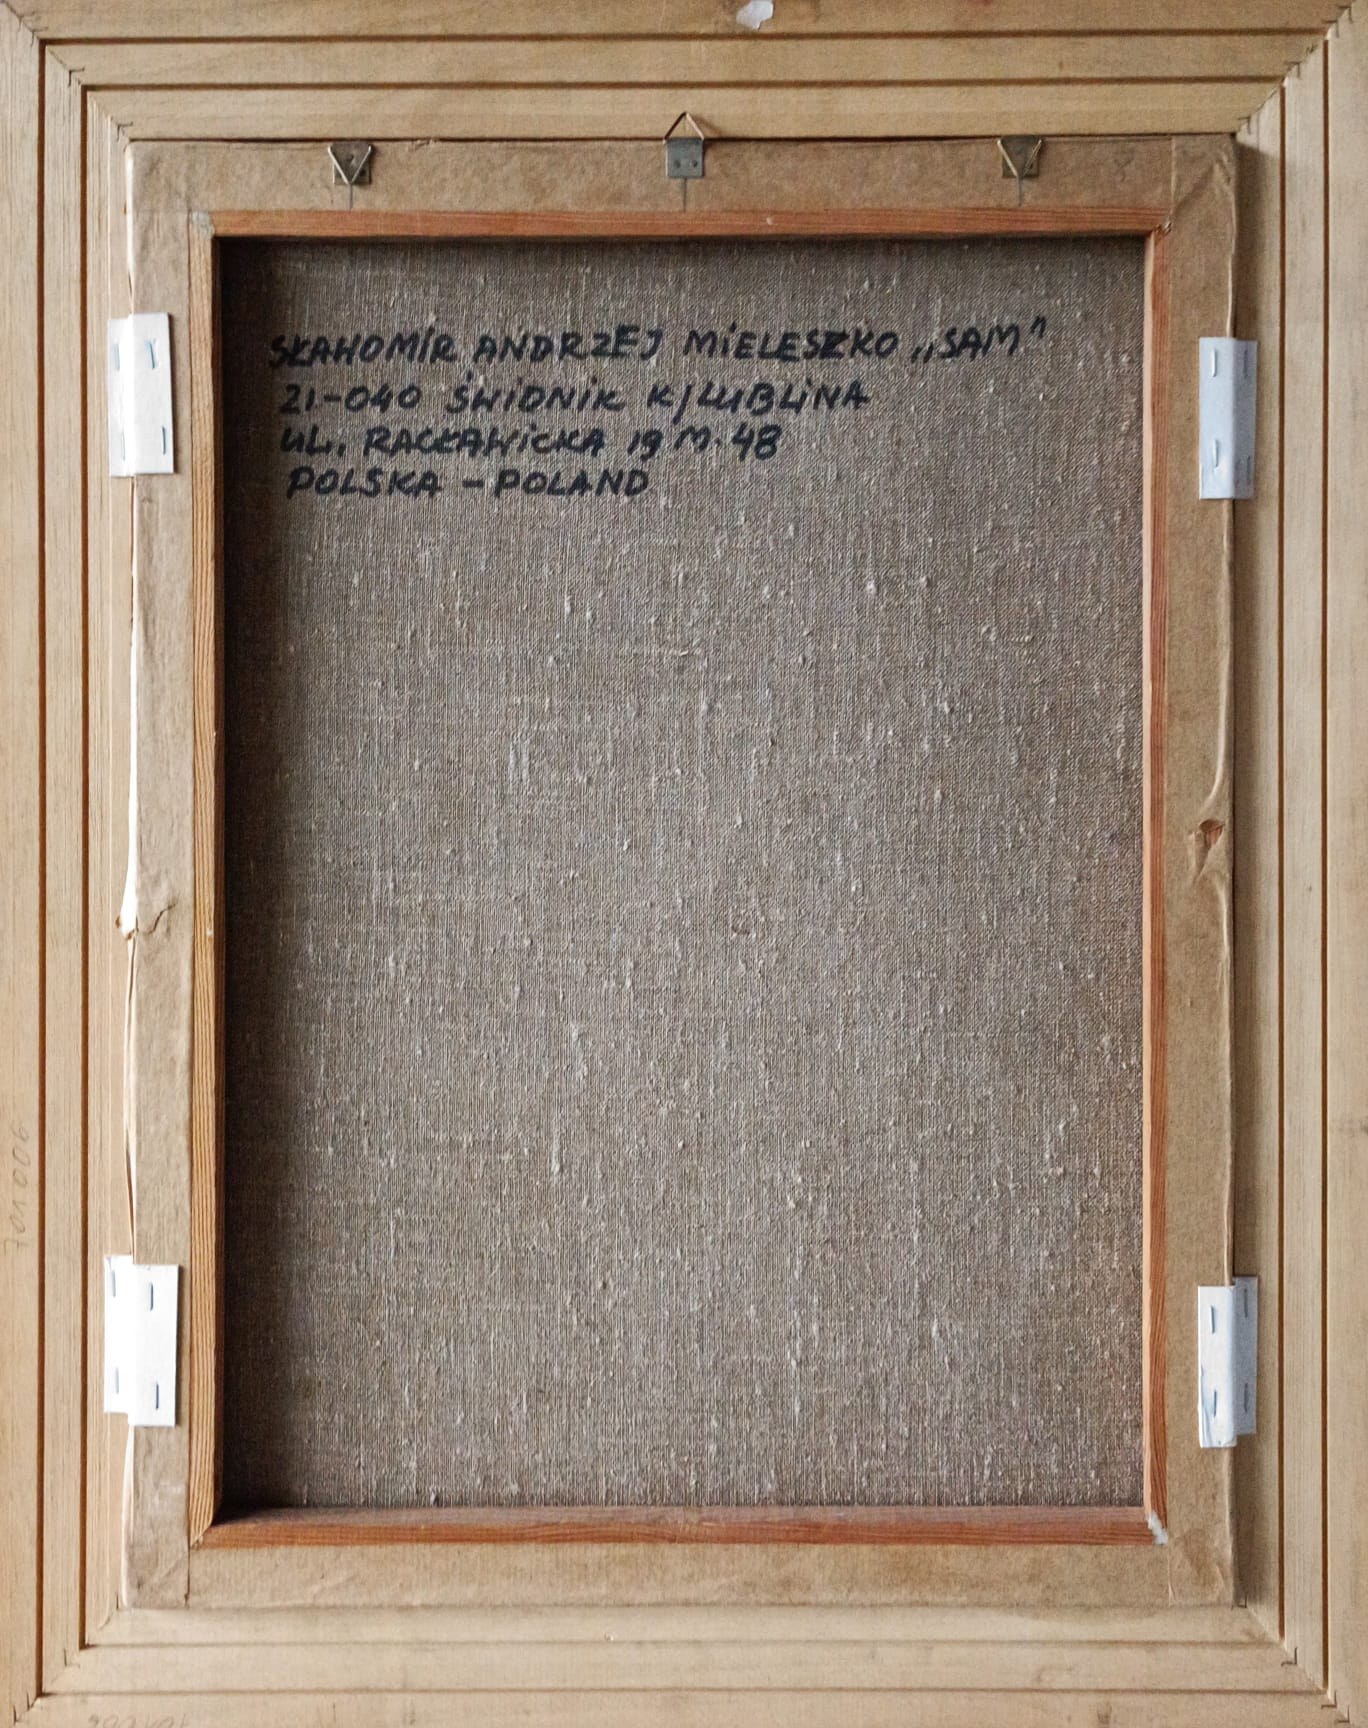 SŁAWOMIR ANDRZEJ MIELESZKO „SAM"
21-040 ŚWIDNIK K/LUBLINA
UL. RACŁAWICKA 19 M. 48
POLSKA - POLAND